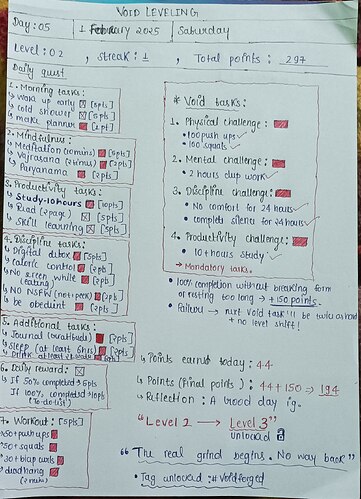 VOID LEVELING
Day: 05
1 February 2025
Saturday
Level: 02 , streak: 1 , Total points: 297
Daily quest
1. Morning tasks:
wake up early [5pts]
cold shower [5pts]
make planner [2pt]
2. Mindfulness:
Meditation (10mins) [5pts]
Vajrasana (2mins) [2pts]
Pranayama [2pts]
3. Productivity tasks:
Study-10hours [10pts]
Read (2page) [5pts]
Skill learning [5pts]
4. Discipline tasks:
Digital detox [5pts]
caloric control [2pts]
No screen while [2pts]
(eating)
NO NSFW (not + peek) [5pts]
be obedient [2pts]
5. Additional tasks:
Journal (gratitude) [2pts]
Sleep (at least 6hrs) [2pts]
Drink at least
6. Daily reward:
If 50% completed → 5pts
If 100% completed → 10pts
(To-do list)
7. Workout: [5pts]
50+ push ups
50+ squats
30+ bicep curls
dead hang
(2 min)
* Void tasks:
1. Physical challenge:
100 push ups
100 squats
2. Mental challenge:
2 hours deep work
3. Discipline challenge:
No comfort for 24 hours
complete silence for 24 hours
4. Productivity challenge:
10+ hours study
→ Mandatory tasks.
100% completion without breaking form
or resting too long → +150 points.
Failure → next Void task'll be twice as hard
+ no level shift!
Points earned today: 44
Points (Final points): 44 + 150 → 194
Reflection: A good day ig.
"Level 2 → Level 3"
unlocked
"The real grind begins. No way back"
Tag unlocked: # Void forged